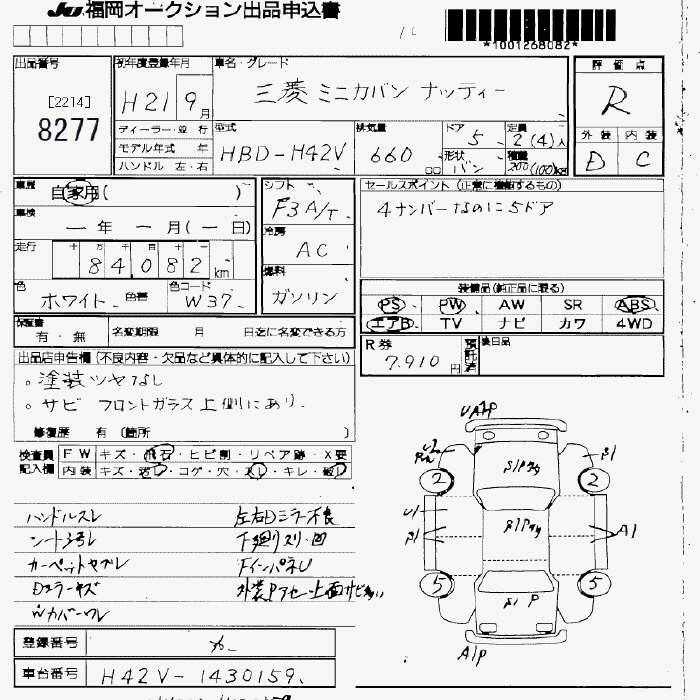 JU福岡オークション出品申込書
*1001268082*
出品番号 初年度登録年月 車名・グレード 評価点
[2214] 8277
H21 9月 三菱 ミニカバン ナッティー R
ディーラー・並行 型式 排気量 ドア 定員 外装 内装
モデル年式 年 HBD-H42V 660 cc 5 2(4)人 D C
ハンドル 左・右 形状 バン 積載 200(100)kg
車歴 自家用( ) シフト F3A/T セールスポイント(正常に機能するもの)
車検 ー年 ー月(ー日) 冷房 AC 4ナンバーなのに5ドア
走行 十 万 千 百 十
84,082 km
色 ホワイト 色替 色コード W37 燃料 ガソリン
装備品(純正品に限る)
PS PW AW SR ABS
エアB TV ナビ カワ 4WD
保証書 有・無 名変期限 月 日迄に名変できる方
R券 7,910円 預託済 後日品
出品店申告欄(不良内容・欠品など具体的に記入して下さい)
。塗装ツヤなし
。サビ フロントガラス上側にあり
修復歴 有 (箇所 )
検査員 FW キズ・飛石・ヒビ割・リペア跡・X要
記入欄 内装 キズ・汚レ・コゲ・穴・スレ・キレ・破レ
UAP
2 2
A1
5 5
A1P
ハンドルスレ 左右Dミラー不良
シートヨゴレ 下廻りスリ・凹
カーペットヤブレ FインパネU
Dミラーキズ
登録番号
車台番号 H42V-1430159